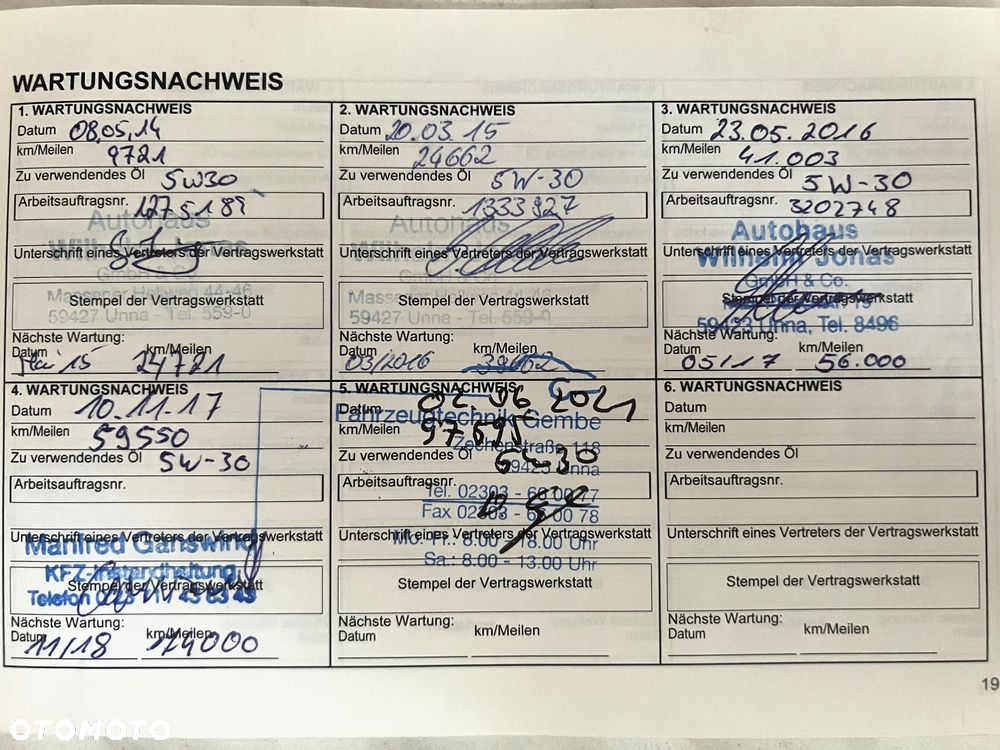 WARTUNGSNACHWEIS
1. WARTUNGSNACHWEIS
Datum 08.05.14
km/Meilen 9721
Zu verwendendes Öl 5W30
Arbeitsauftragsnr. 1275189
Autohaus
Unterschrift eines Vertreters der Vertragswerkstatt
GmbH & Co.
Massener Hellweg 44-46
Stempel der Vertragswerkstatt
59427 Unna - Tel. 559-0
Nächste Wartung:
Datum km/Meilen
Mai 15 24721
2. WARTUNGSNACHWEIS
Datum 20.03.15
km/Meilen 24662
Zu verwendendes Öl 5W-30
Arbeitsauftragsnr. 1333927
Autohaus
Unterschrift eines Vertreters der Vertragswerkstatt
Stempel der Vertragswerkstatt
59427 Unna - Tel. 559-0
Nächste Wartung:
Datum km/Meilen
03/2016 39662
3. WARTUNGSNACHWEIS
Datum 23.05.2016
km/Meilen 41.003
Zu verwendendes Öl 5W-30
Arbeitsauftragsnr. 3202748
Autohaus
Unterschrift eines Vertreters der Vertragswerkstatt
Wilhelm Jonas
GmbH & Co.
Stempel der Vertragswerkstatt
59423 Unna, Tel. 8496
Nächste Wartung:
Datum km/Meilen
05/17 56.000
4. WARTUNGSNACHWEIS
Datum 10.11.17
km/Meilen 59550
Zu verwendendes Öl 5W-30
Arbeitsauftragsnr.
Unterschrift eines Vertreters der Vertragswerkstatt
Manfred Ganswind
KFZ-Instandhaltung
Stempel der Vertragswerkstatt
Telefon
Nächste Wartung:
Datum km/Meilen
11/18 74000
5. WARTUNGSNACHWEIS
Datum 2021
Fahrzeugtechnik Gembe
km/Meilen 97595
Zechenstraße 118
Zu verwendendes Öl
59425 Unna
Arbeitsauftragsnr.
Tel. 02303 - 66 00 77
Fax 02303 - 66 00 78
Unterschrift eines Vertreters der Vertragswerkstatt
Mo.-Fr.: 8.00 - 18.00 Uhr
Sa.: 8.00 - 13.00 Uhr
Stempel der Vertragswerkstatt
Nächste Wartung:
Datum km/Meilen
6. WARTUNGSNACHWEIS
Datum
km/Meilen
Zu verwendendes Öl
Arbeitsauftragsnr.
Unterschrift eines Vertreters der Vertragswerkstatt
Stempel der Vertragswerkstatt
Nächste Wartung:
Datum km/Meilen
19
OTOMOTO